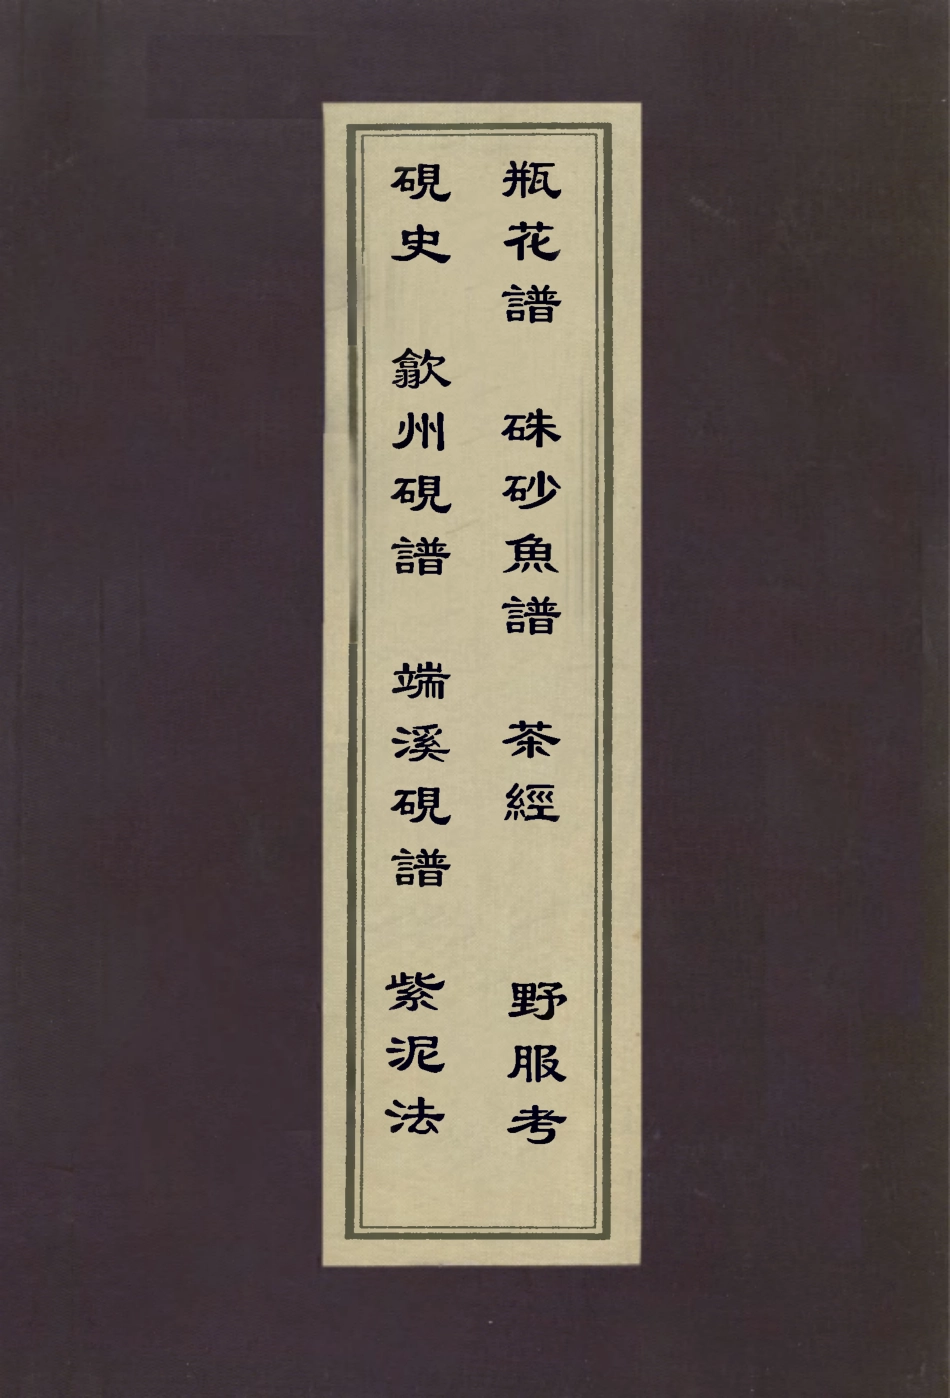 瓶花譜 硃砂魚譜 茶經 野服考
硯史 歙州硯譜 端溪硯譜 紫泥法